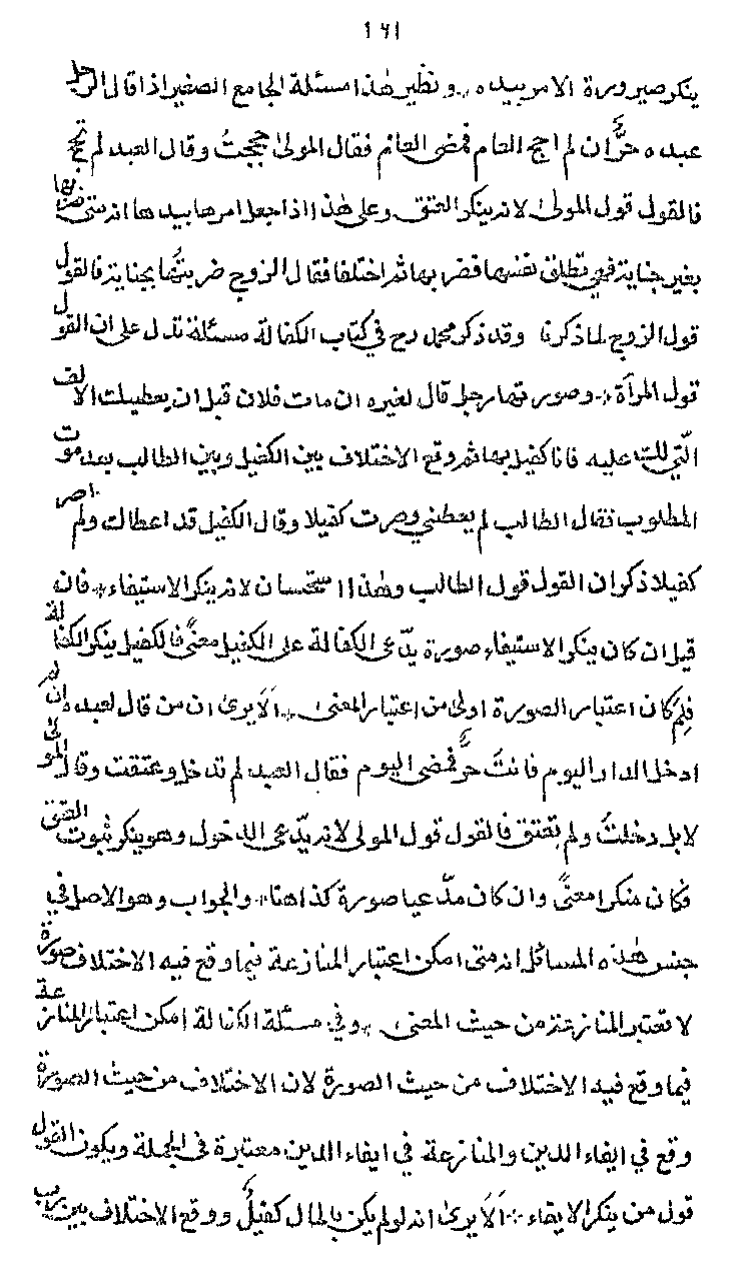 ١٦١
ينكر صيرورة الامر بيده ٭ ونظير هذا مسئلة الجامع الصغير اذا قال الرجل
عبده حرٌّ ان لم احج العام فمضى العام فقال المولى حججتُ وقال العبد لم تحج
فالقول قول المولى لانه ينكر العتق وعلى هذا اذا جعل امرها بيدها انه متى ضربها
بغير جناية فهي تطلق نفسها فضربها ثم اختلفا فقال الزوج ضربتُها بجناية فالقول
قول الزوج لما ذكرنا وقد ذكر محمد رح في كتاب الكفالة مسئلة تدل على ان القول
قول المرأة ٭ وصورتها رجل قال لغيره ان مات فلان قبل ان يعطيك الالف
الّتي لك عليه فانا كفيل بها ثم وقع الاختلاف بين الكفيل وبين الطالب بعد موت
المطلوب فقال الطالب لم يعطني وصرت كفيلا وقال الكفيل قد اعطاك ولم اصر
كفيلا ذكر ان القول قول الطالب وهذا استحسان لانه ينكر الاستيفاء ٭ فان
قيل ان كان ينكر الاستيفاء صورة يدّعى الكفالة على الكفيل معنًى فالكفيل ينكر الكفالة
فلِمَ كان اعتبار الصورة اولى من اعتبار المعنى ٭ اَلَا يرى ان من قال لعبده ان لم
ادخل الدار اليوم فانتَ حرٌّ فمضى اليوم فقال العبد لم تدخل وعتقت وقال المولى
لا بل دخلتُ ولم تعتق فالقول قول المولى لانه يدّعى الدخول وهو ينكر ثبوت العتق
فكان منكرا معنًى وان كان مدّعيا صورة كذا هنا ٭ والجواب وهو الاصل في
جنس هذه المسائل انه متى امكن اعتبار المنازعة فيما وقع فيه الاختلاف صورة
لا تعتبر المنازعة من حيث المعنى ٭ وفي مسئلة الكفالة امكن اعتبار المنازعة
فيما وقع فيه الاختلاف من حيث الصورة لان الاختلاف من حيث الصورة
وقع في ايفاء الدين والمنازعة في ايفاء الدين معتبرة في الجملة ويكون القول
قول من ينكر الايفاء ٭ اَلَا يرى انه لو لم يكن بالمال كفيلٌ ووقع الاختلاف بين رب